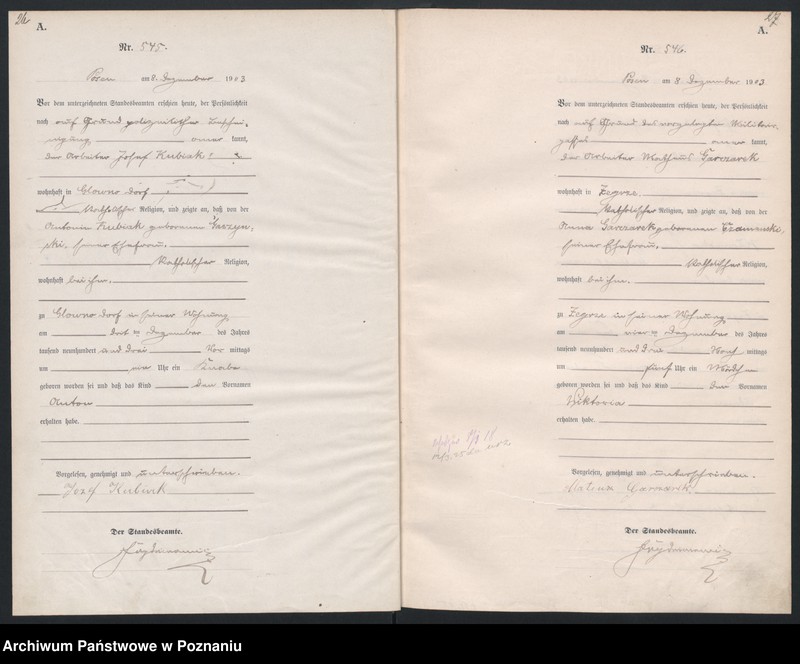 26
A.
Nr. 545.
Posen am 8. Dezember 1903
Vor dem unterzeichneten Standesbeamten erschien heute, der Persönlichkeit
nach auf Grund polizeilicher Beschei-
nigung kannt,
der Arbeiter Josef Kubiak
wohnhaft in Glowno Dorf
katholischer Religion, und zeigte an, daß von der
Antonie Kubiak geborenen
seiner Ehefrau,
katholischer Religion,
wohnhaft bei ihm,
zu Glowno Dorf in seiner Wohnung
am Dezember des Jahres
tausend neunhundert und drei Vor mittags
um Uhr ein Knabe
geboren worden sei und daß das Kind den Vornamen
Anton
erhalten habe.
Vorgelesen, genehmigt und unterschrieben.
Józef Kubiak
Der Standesbeamte.
17
A.
Nr. 546.
Posen am 8. Dezember 1903
Vor dem unterzeichneten Standesbeamten erschien heute, der Persönlichkeit
nach auf Grund des vorgelegten Militär-
passes kannt,
der Arbeiter Mathäus Garczarek
wohnhaft in Zegrze
katholischer Religion, und zeigte an, daß von der
Anna Garczarek geborenen
seiner Ehefrau,
katholischer Religion,
wohnhaft bei ihm,
zu Zegrze in seiner Wohnung
am Dezember des Jahres
tausend neunhundert und drei Nach mittags
um fünf Uhr ein Mädchen
geboren worden sei und daß das Kind den Vornamen
Wiktoria
erhalten habe.
Vorgelesen, genehmigt und unterschrieben.
Garczarek
Der Standesbeamte.
Archiwum Państwowe w Poznaniu